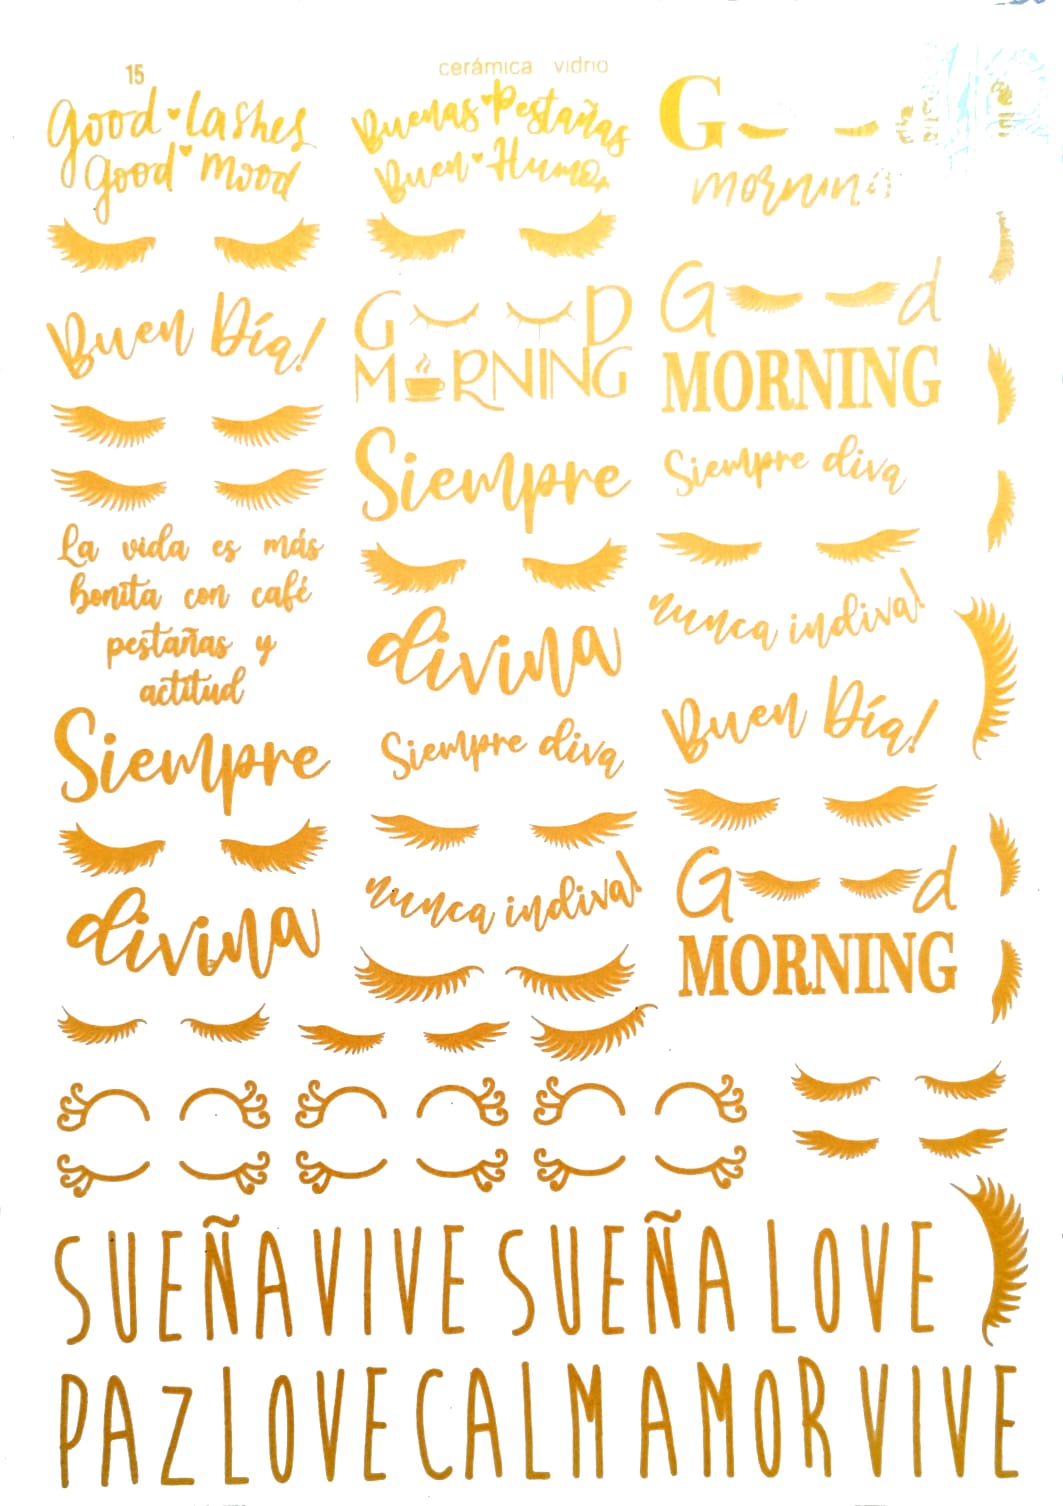 15
cerámica vidrio
Good lashes
Good mood
Buen Día!
La vida es más
bonita con café
pestañas y
actitud
Siempre
divina
Buenas Pestañas
Buen Humor
G D
M RNING
Siempre
divina
Siempre diva
nunca indiva!
G
morning
G d
MORNING
Siempre diva
nunca indiva!
Buen Día!
G d
MORNING
SUEÑA VIVE SUEÑA LOVE
PAZ LOVE CALM AMOR VIVE